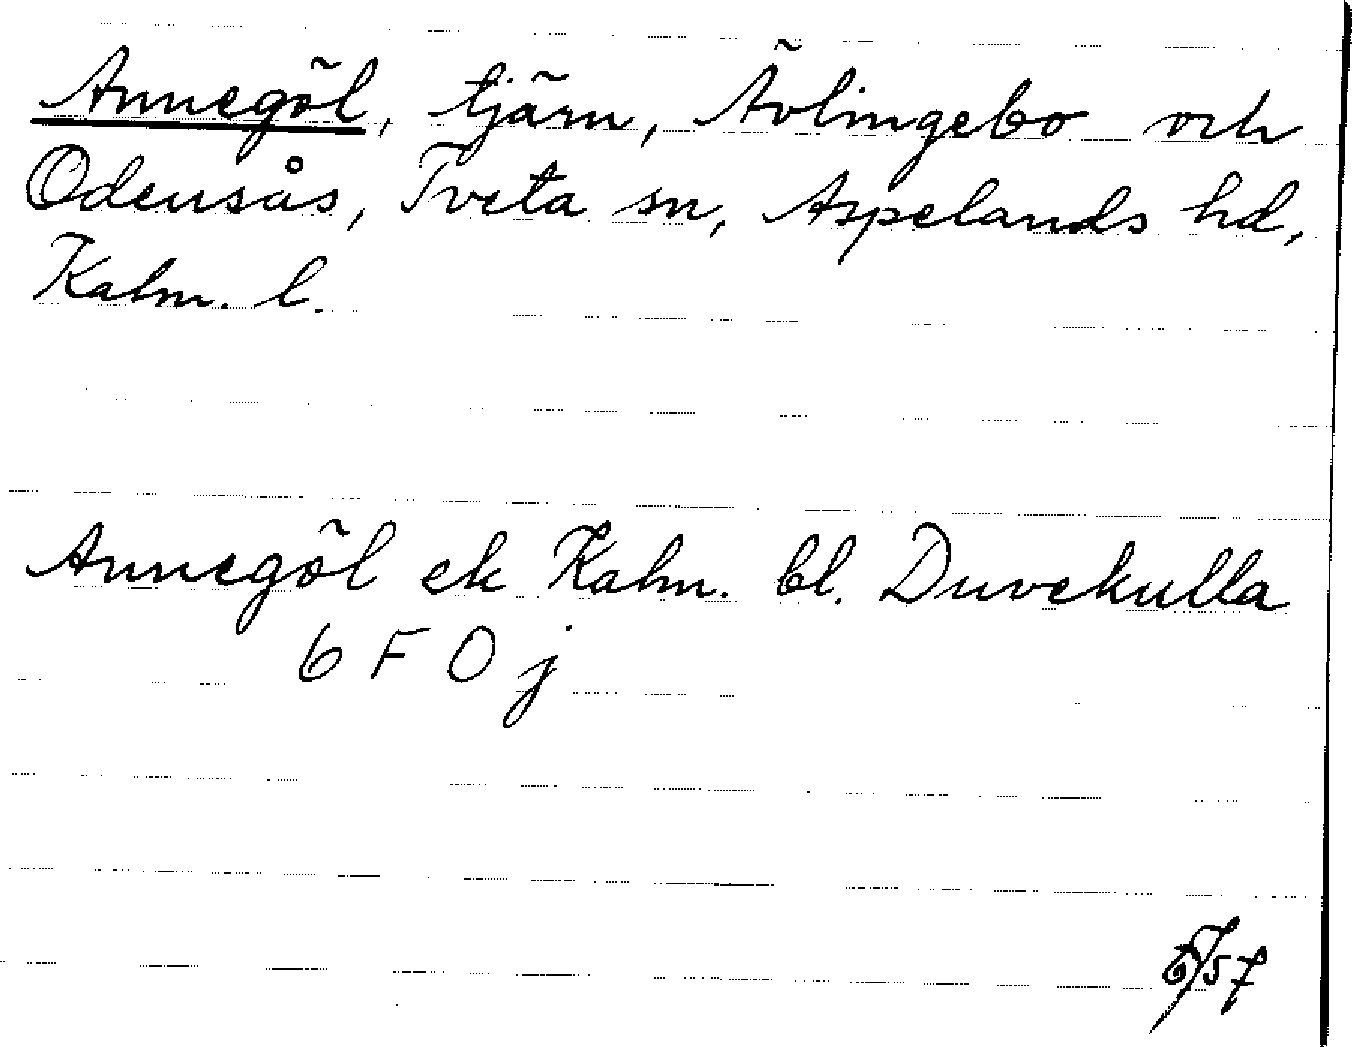 Annegöl, tjärn, Ävlingebo och
Odensås, Tveta sn, Aspelands hd,
Kalm. l.
Annegöl ek Kalm. bl. Duvekulla
6 F 0 j